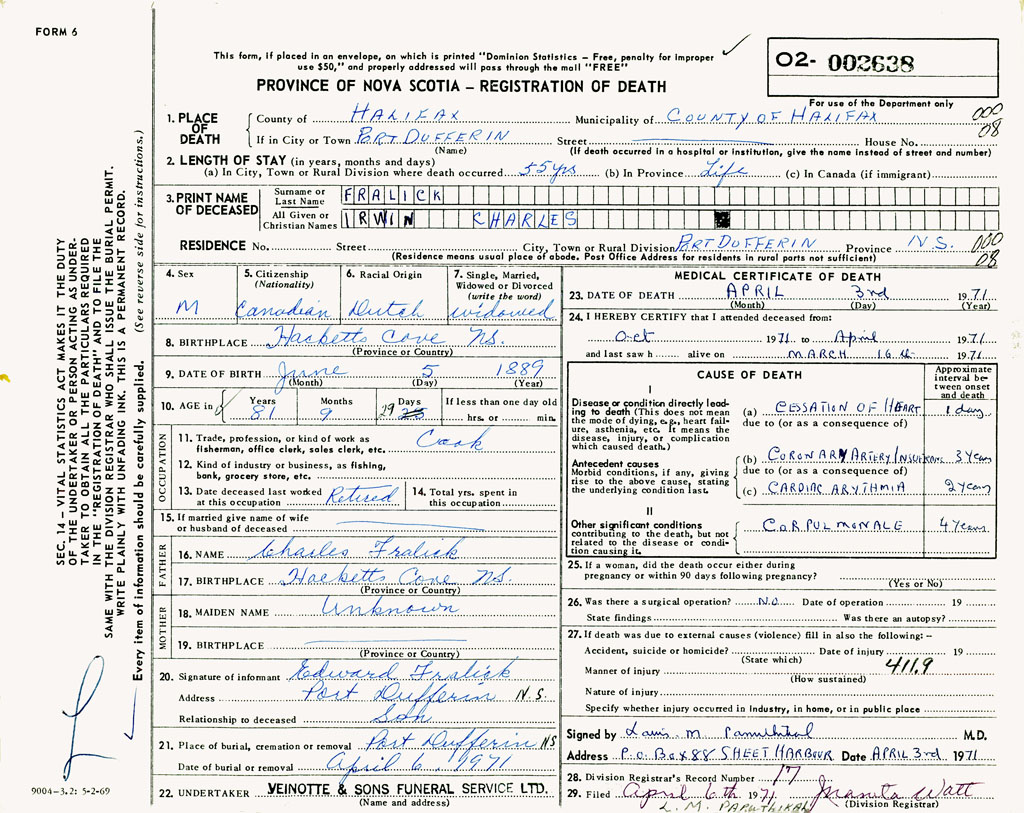 FORM 6
This form, if placed in an envelope, on which is printed "Dominion Statistics – Free, penalty for improper
use $50," and properly addressed will pass through the mail "FREE"
02- 002638
PROVINCE OF NOVA SCOTIA – REGISTRATION OF DEATH
For use of the Department only
1. PLACE OF DEATH
County of HALIFAX Municipality of COUNTY OF HALIFAX 000
If in City or Town PORT DUFFERIN Street House No. 08
(Name) (If death occurred in a hospital or institution, give the name instead of street and number)
2. LENGTH OF STAY (in years, months and days)
(a) In City, Town or Rural Division where death occurred 55 yrs (b) In Province Life (c) In Canada (if immigrant)
3. PRINT NAME OF DECEASED
Surname or Last Name FRALICK
All Given or Christian Names IRWIN CHARLES
RESIDENCE No. Street City, Town or Rural Division PORT DUFFERIN Province N.S. 000
(Residence means usual place of abode. Post Office Address for residents in rural parts not sufficient) 08
4. Sex
M
5. Citizenship
(Nationality)
Canadian
6. Racial Origin
Dutch
7. Single, Married,
Widowed or Divorced
(write the word)
widowed
8. BIRTHPLACE Hacketts Cove NS.
(Province or Country)
9. DATE OF BIRTH June 5 1889
(Month) (Day) (Year)
10. AGE in Years Months Days If less than one day old
81 9 29 hrs. or min.
OCCUPATION
11. Trade, profession, or kind of work as
fisherman, office clerk, sales clerk, etc. Cook
12. Kind of industry or business, as fishing,
bank, grocery store, etc.
13. Date deceased last worked
at this occupation Retired
14. Total yrs. spent in
this occupation
15. If married give name of wife
or husband of deceased
FATHER
16. NAME Charles Fralick
17. BIRTHPLACE Hacketts Cove NS.
(Province or Country)
MOTHER
18. MAIDEN NAME Unknown
19. BIRTHPLACE
(Province or Country)
20. Signature of informant Edward Fralick
Address Port Dufferin N.S.
Relationship to deceased Son
21. Place of burial, cremation or removal Port Dufferin NS
Date of burial or removal April 6 1971
22. UNDERTAKER VEINOTTE & SONS FUNERAL SERVICE LTD.
(Name and address)
MEDICAL CERTIFICATE OF DEATH
23. DATE OF DEATH APRIL 3rd 1971
(Month) (Day) (Year)
24. I HEREBY CERTIFY that I attended deceased from:
Oct 1971 to April 1971
and last saw h alive on MARCH 16 th 1971
CAUSE OF DEATH
Approximate
interval be-
tween onset
and death
I
Disease or condition directly lead-
ing to death (This does not mean
the mode of dying, e.g., heart fail-
ure, asthenia, etc. It means the
disease, injury, or complication
which caused death.)
(a) CESSATION OF HEART 1 day
due to (or as a consequence of)
Antecedent causes
Morbid conditions, if any, giving
rise to the above cause, stating
the underlying condition last.
(b) CORONARY ARTERY 3 Years
due to (or as a consequence of)
(c) CARDIAC ARYTHMIA 2 years
II
Other significant conditions
contributing to the death, but not
related to the disease or condi-
tion causing it.
CORPULMONALE 4 Years
25. If a woman, did the death occur either during
pregnancy or within 90 days following pregnancy?
(Yes or No)
26. Was there a surgical operation? NO Date of operation 19
State findings Was there an autopsy?
27. If death was due to external causes (violence) fill in also the following: –
Accident, suicide or homicide? Date of injury 19
(State which)
Manner of injury 411.9
(How sustained)
Nature of injury
Specify whether injury occurred in industry, in home, or in public place
Signed by M. M.D.
Address P.O. Box 88 SHEET HARBOUR Date APRIL 3rd 1971
28. Division Registrar's Record Number 17
29. Filed April 6th 1971 Juanita Watt
(Division Registrar)
L. M.
SEC. 14 – VITAL STATISTICS ACT MAKES IT THE DUTY
OF THE UNDERTAKER OR PERSON ACTING AS UNDER-
TAKER TO OBTAIN ALL THE PARTICULARS REQUIRED
IN THE "REGISTRATION OF DEATH" AND TO FILE THE
SAME WITH THE DIVISION REGISTRAR WHO SHALL ISSUE THE BURIAL PERMIT.
WRITE PLAINLY WITH UNFADING INK. THIS IS A PERMANENT RECORD.
Every item of information should be carefully supplied. (See reverse side for instructions.)
9004-3.2: 5-2-69